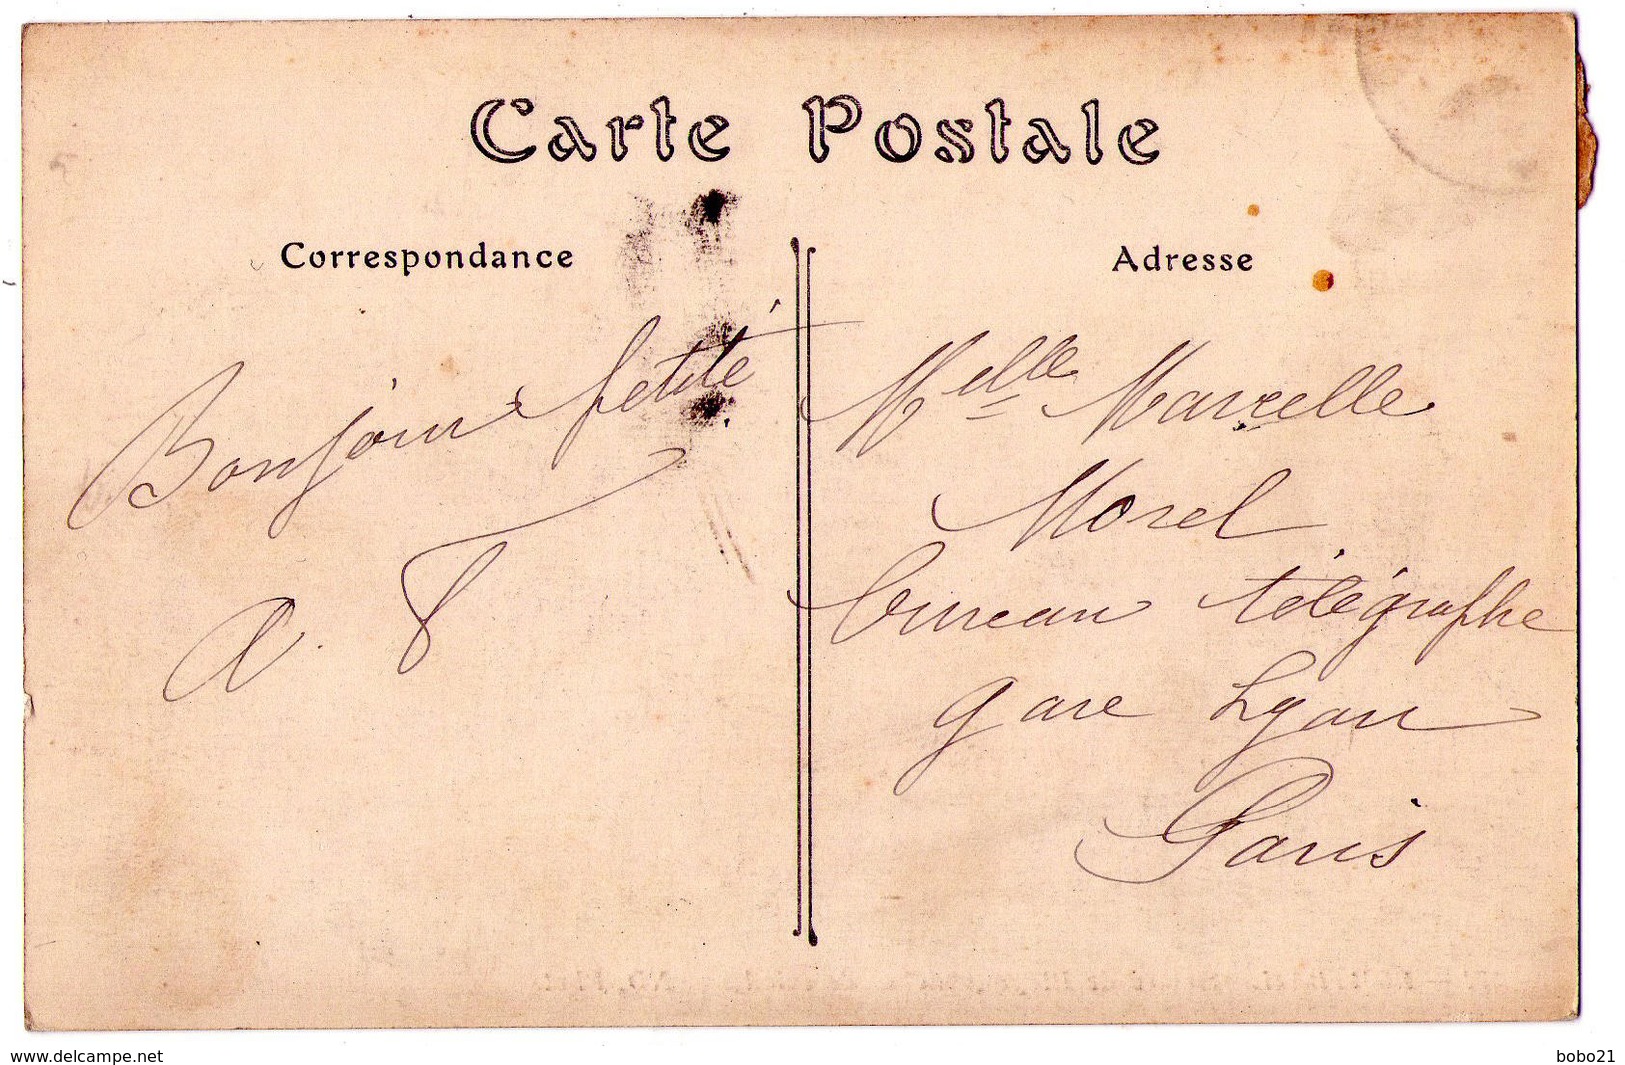 Carte Postale
Correspondance
Adresse
Bonjour petite
A.
Melle Marcelle
Morel
bureau télégraphe
gare Lyon
Paris
www.delcampe.net
bobo21